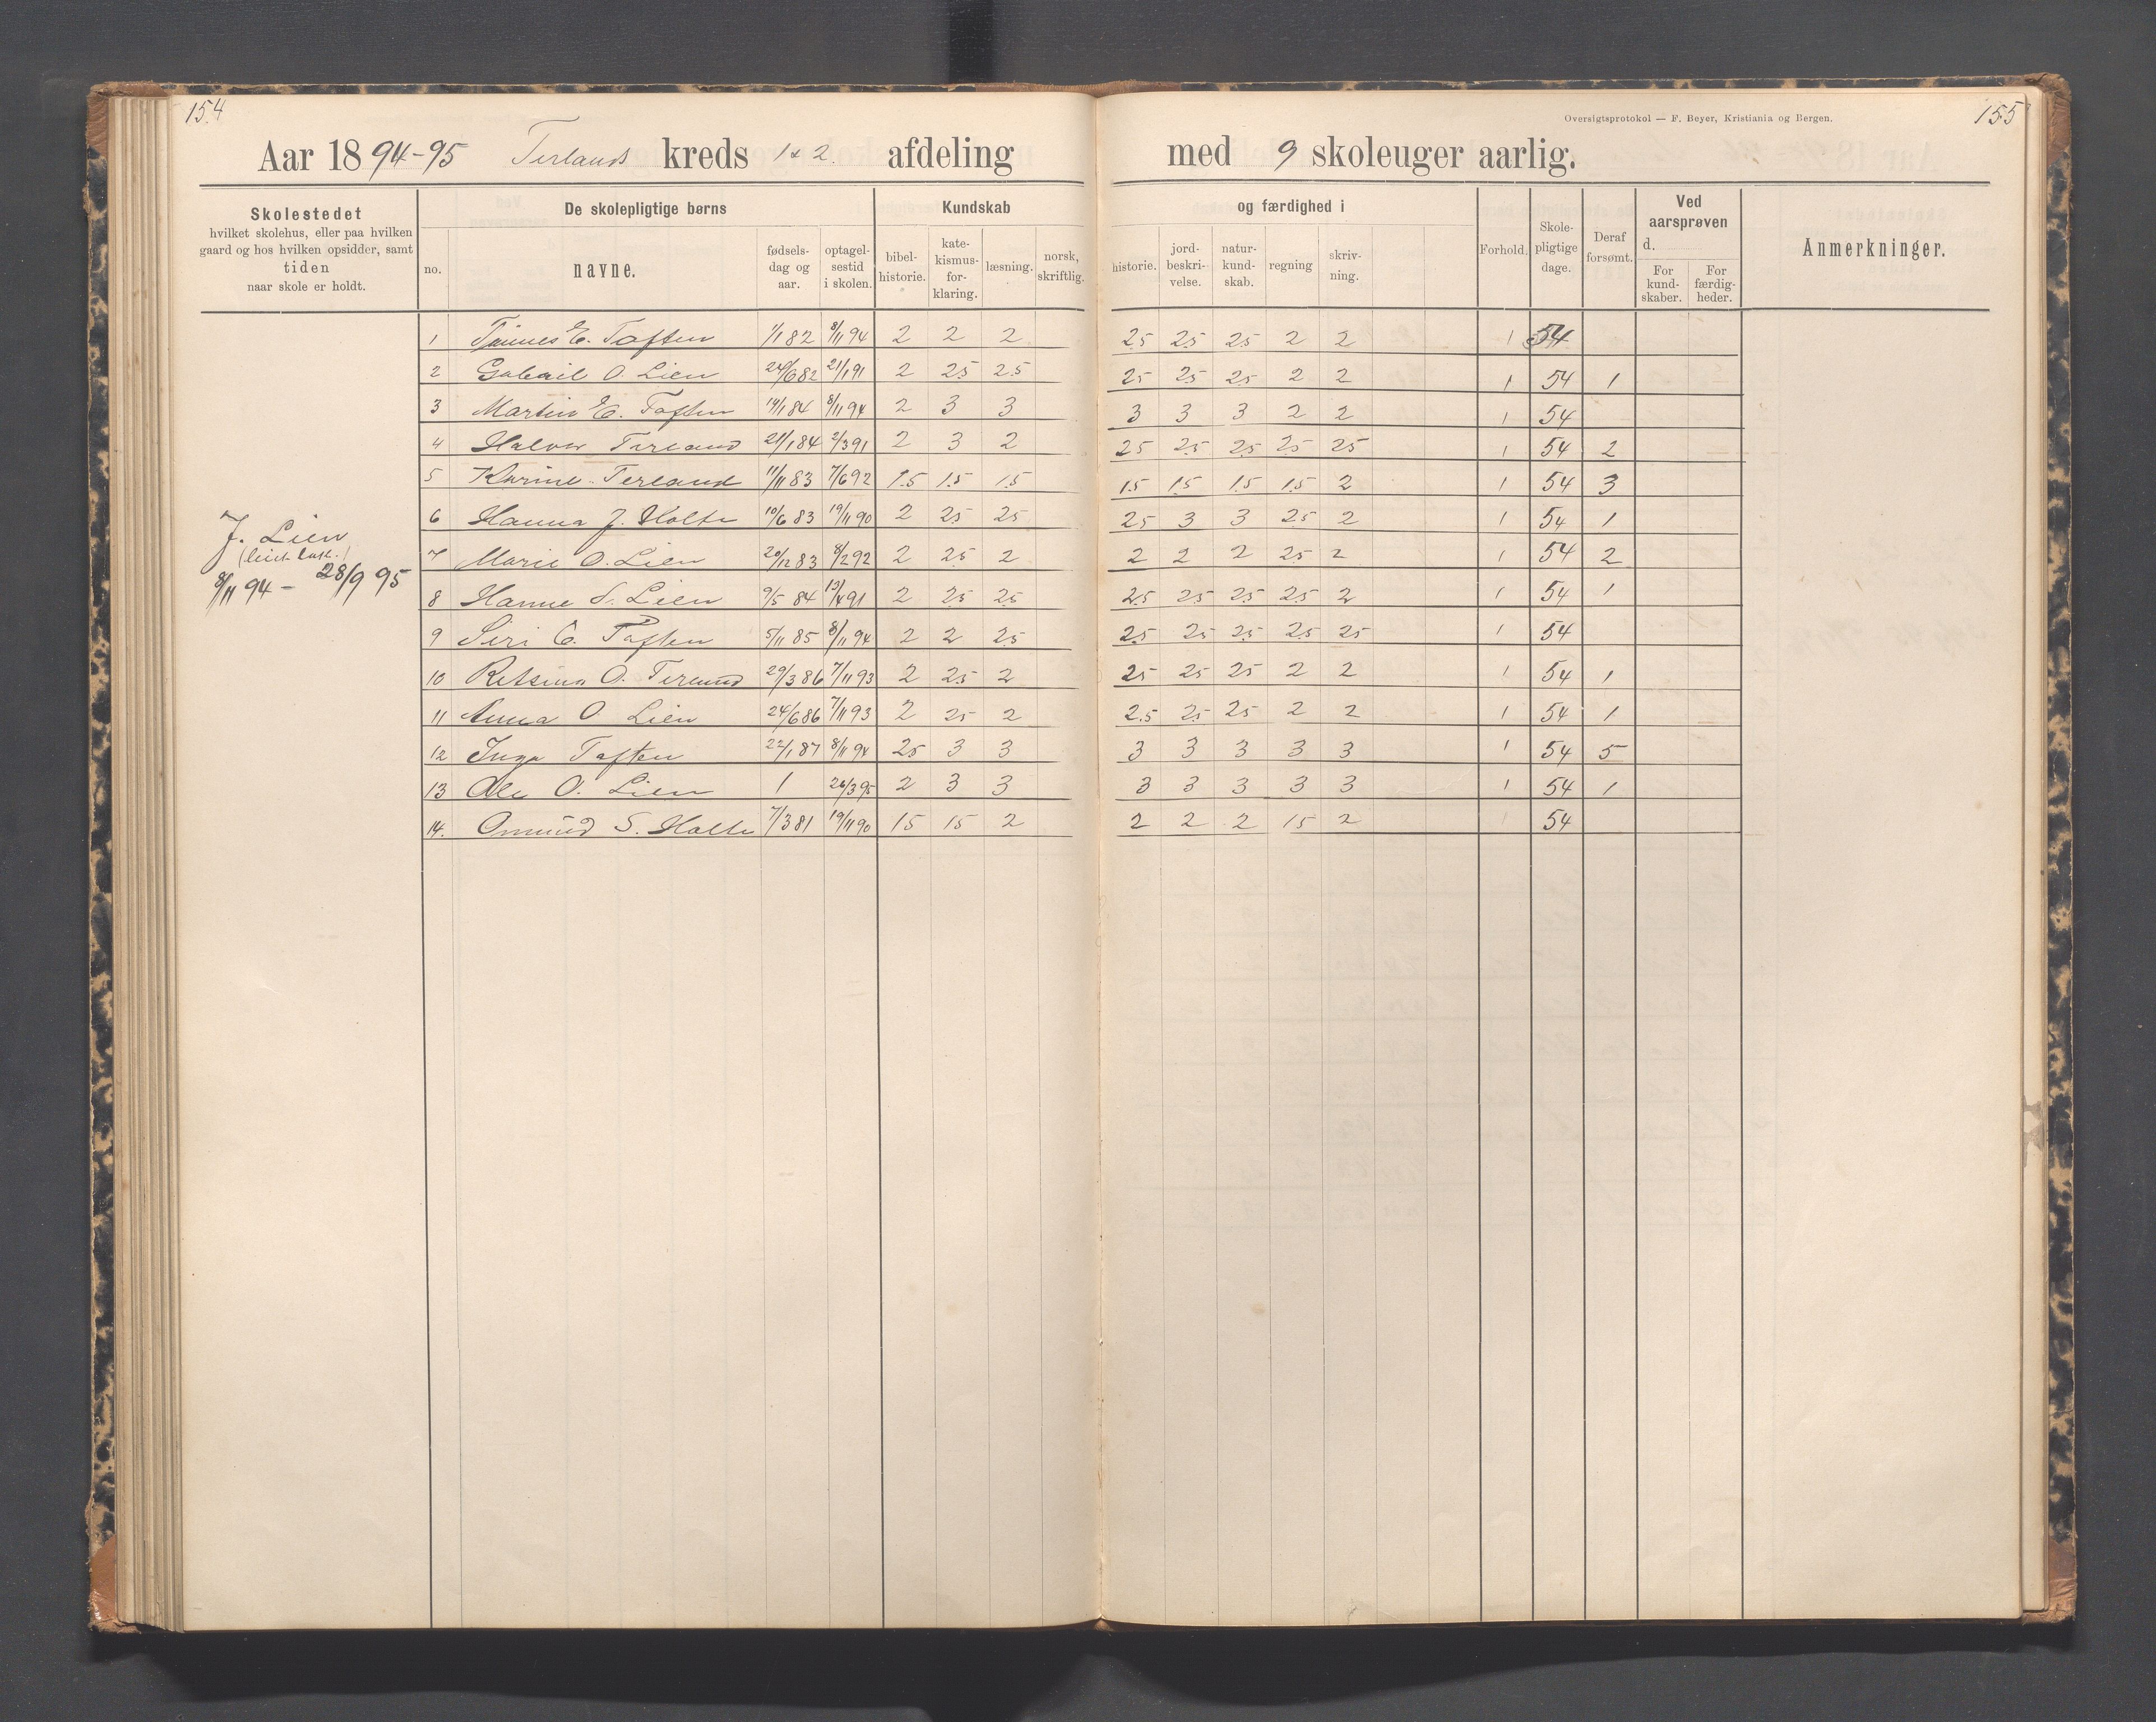 154
155
Oversigtsprotokol — F. Beyer, Kristiania og Bergen.
Aar 1894-95 Terlands kreds 1 & 2. afdeling med 9 skoleuger aarlig.
Skolestedet hvilket skolehus, eller paa hvilken gaard og hos hvilken opsidder, samt tiden naar skole er holdt.
De skolepligtige børns
no. navne. fødsels-dag og aar. optagel-sestid i skolen.
Kundskab og færdighed i
bibel-historie. kate-kismus-for-klaring. læsning. norsk, skriftlig. historie. jord-beskri-velse. natur-kund-skab. regning skriv-ning.
Forhold. Skole-pligtige dage. Deraf forsømt.
Ved aarsprøven d.
For kund-skaber. For færdig-heder.
Anmerkninger.
J. Lien
8/11 94 - 28/9 95
1 Tønnes E. Toften 1/1 82 8/11 94 2 2 2 25 25 25 2 2 1 54
2 Gabriel O. Lien 24/6 82 21/1 91 2 25 25 25 25 25 2 2 1 54 1
3 Martin E. Toften 14/1 84 8/11 94 2 3 3 3 3 3 2 2 1 54
4 Halvor Terland 21/1 84 2/3 91 2 3 2 25 25 25 25 25 1 54 2
5 Karine Terland 11/11 83 7/6 92 1.5 1.5 1.5 1.5 1.5 1.5 1.5 2 1 54 3
6 Hanna J. Holte 10/6 83 19/11 90 2 25 25 25 3 3 25 2 1 54 1
7 Marie O. Lien 20/12 83 8/2 92 2 25 2 2 2 2 25 2 1 54 2
8 Hanne S. Lien 9/5 84 13/4 91 2 25 25 25 25 25 25 2 1 54 1
9 Siri E. Toften 5/11 85 8/11 94 2 2 25 25 25 25 25 25 1 54
10 Retsina O. Terland 29/3 86 7/11 93 2 25 2 25 25 25 2 2 1 54 1
11 Anna O. Lien 24/6 86 7/11 93 2 25 2 2.5 25 25 2 2 1 54 1
12 Inga Toften 22/1 87 8/11 94 25 3 3 3 3 3 3 3 1 54 5
13 Ole O. Lien 1 26/3 95 2 3 3 3 3 3 3 3 1 54 1
14. Omund S. Holte 7/3 81 19/11 90 15 15 2 2 2 2 15 2 1 54